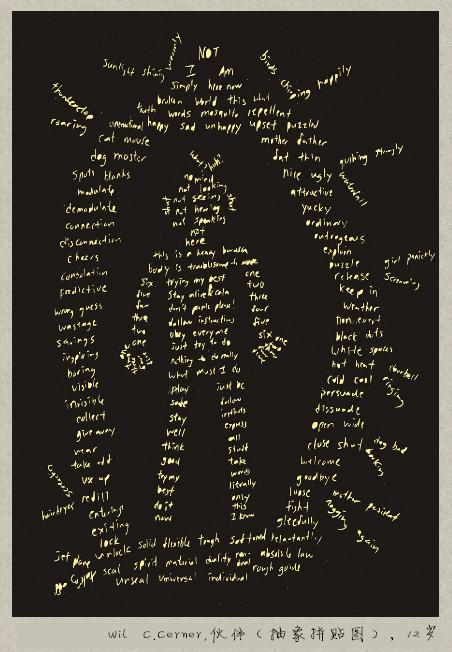 NOT
I AM
simply here now
sunlight shining
birds chirping happily
broken world this what
truth words mosquito repellent
thunderclap
roaring
unnatural happy sad unhappy upset puzzled
cat mouse
mother father
dog master
fat thin
nice ugly
attractive
yucky
ordinary
outrageous
explain
puzzle
release
keep in
weather
non event
black dots
white spaces
hot heat
cold cool
persuade
dissuade
open wide
close shut
welcome
goodbye
loose
tight
gleefully
waterfall
girl panicky
screaming
ringing
dog bad
barking
mother president
nagging
again
modulate
demodulate
connection
disconnection
cheers
consolation
predictive
wrong guess
wastage
savings
inspiring
boring
visible
invisible
collect
give away
wear
take off
use up
refill
entering
exiting
lock
hairdryer
not looking
not seeing
not hearing
not speaking
not
here
this is a heavy burden
body is troublesome to
trying my best
stay alive
don't panic please
follow instructions
obey everyone
just try to do
nothing to do really
what must I do
six
five
four
three
two
one
one
two
three
four
five
six
play
safe
stay
well
think
good
try my
best
do it
now
just be
follow
instincts
express
all
stuff
take
words
literally
only
this
I know
unlock solid flexible tough softened reluctantly
jet plane
soul spirit material duality non-dual absolute law
unseal universal individual
rough guide
Wil C.Cerner,伙伴（抽象拼贴图）, 12岁